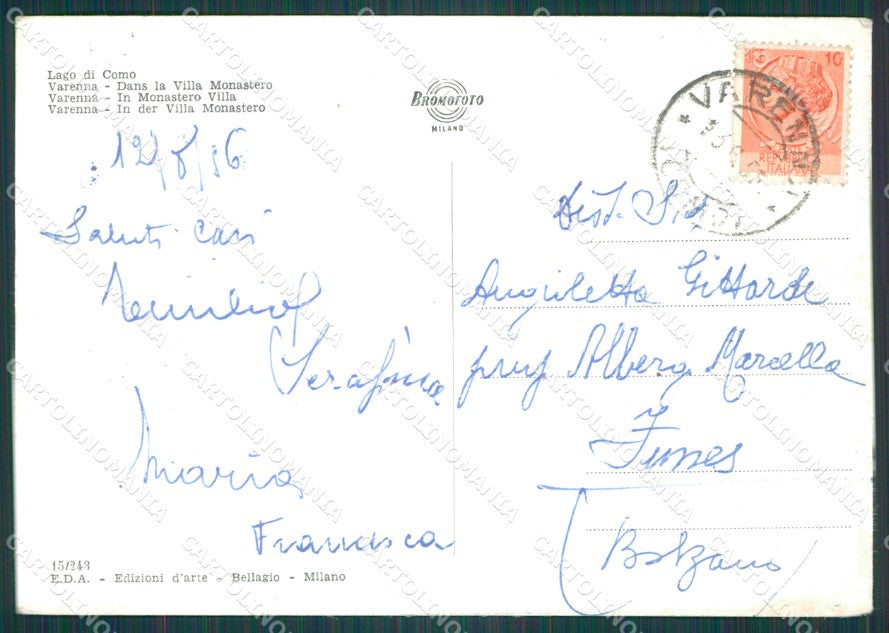 Lago di Como
Varenna - Dans la Villa Monastero
Varenna - In Monastero Villa
Varenna - In der Villa Monastero
BROMOFOTO
MILANO
10
VARENNA
ITALIANA
12/8/56
Saluti cari
Serafina
Maria
Francesca
Dist. Sig.
Angioletta Gittardi
Alberg. Marcella
Funes
Bolzano
15/243
E.D.A. - Edizioni d'arte - Bellagio - Milano
CARTOLINOMANIA